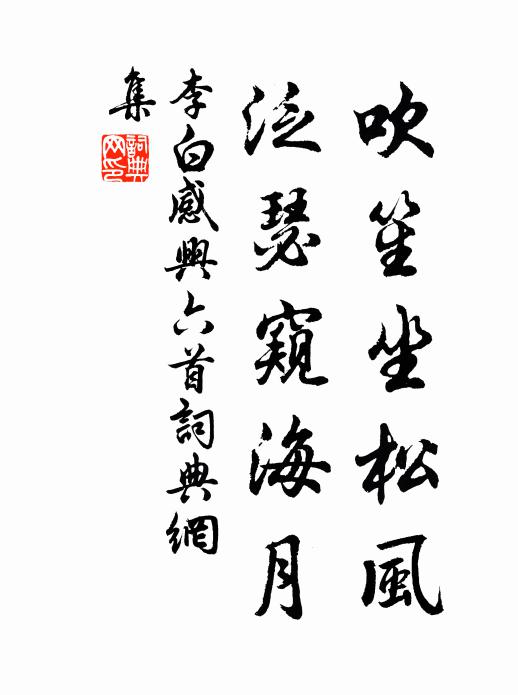 吹笙坐松風
泛瑟窺海月
李白感興六首詞典網
集
詞典
网印